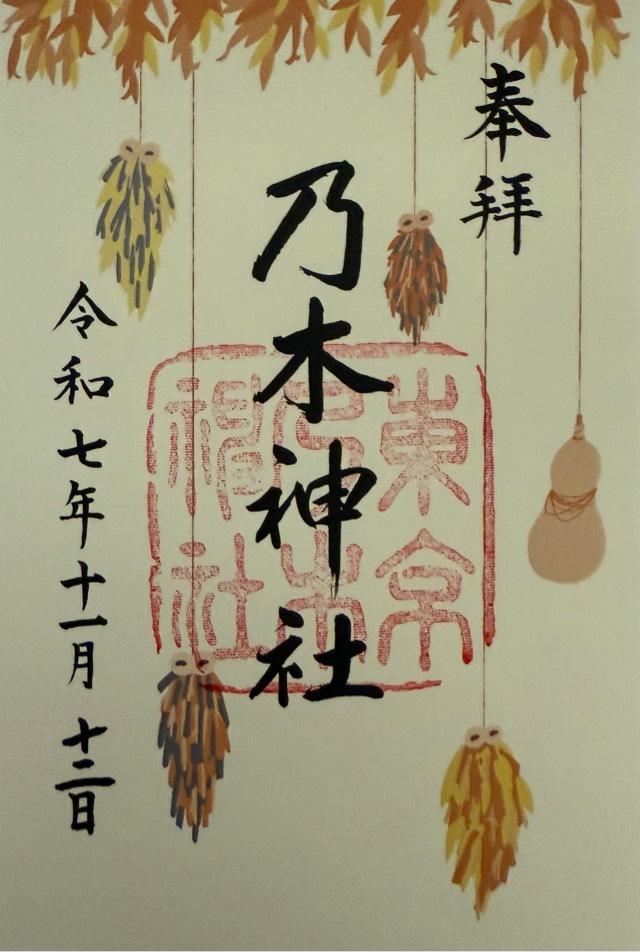 奉拝
乃木神社
東京
乃木
神社
令和七年十一月十二日